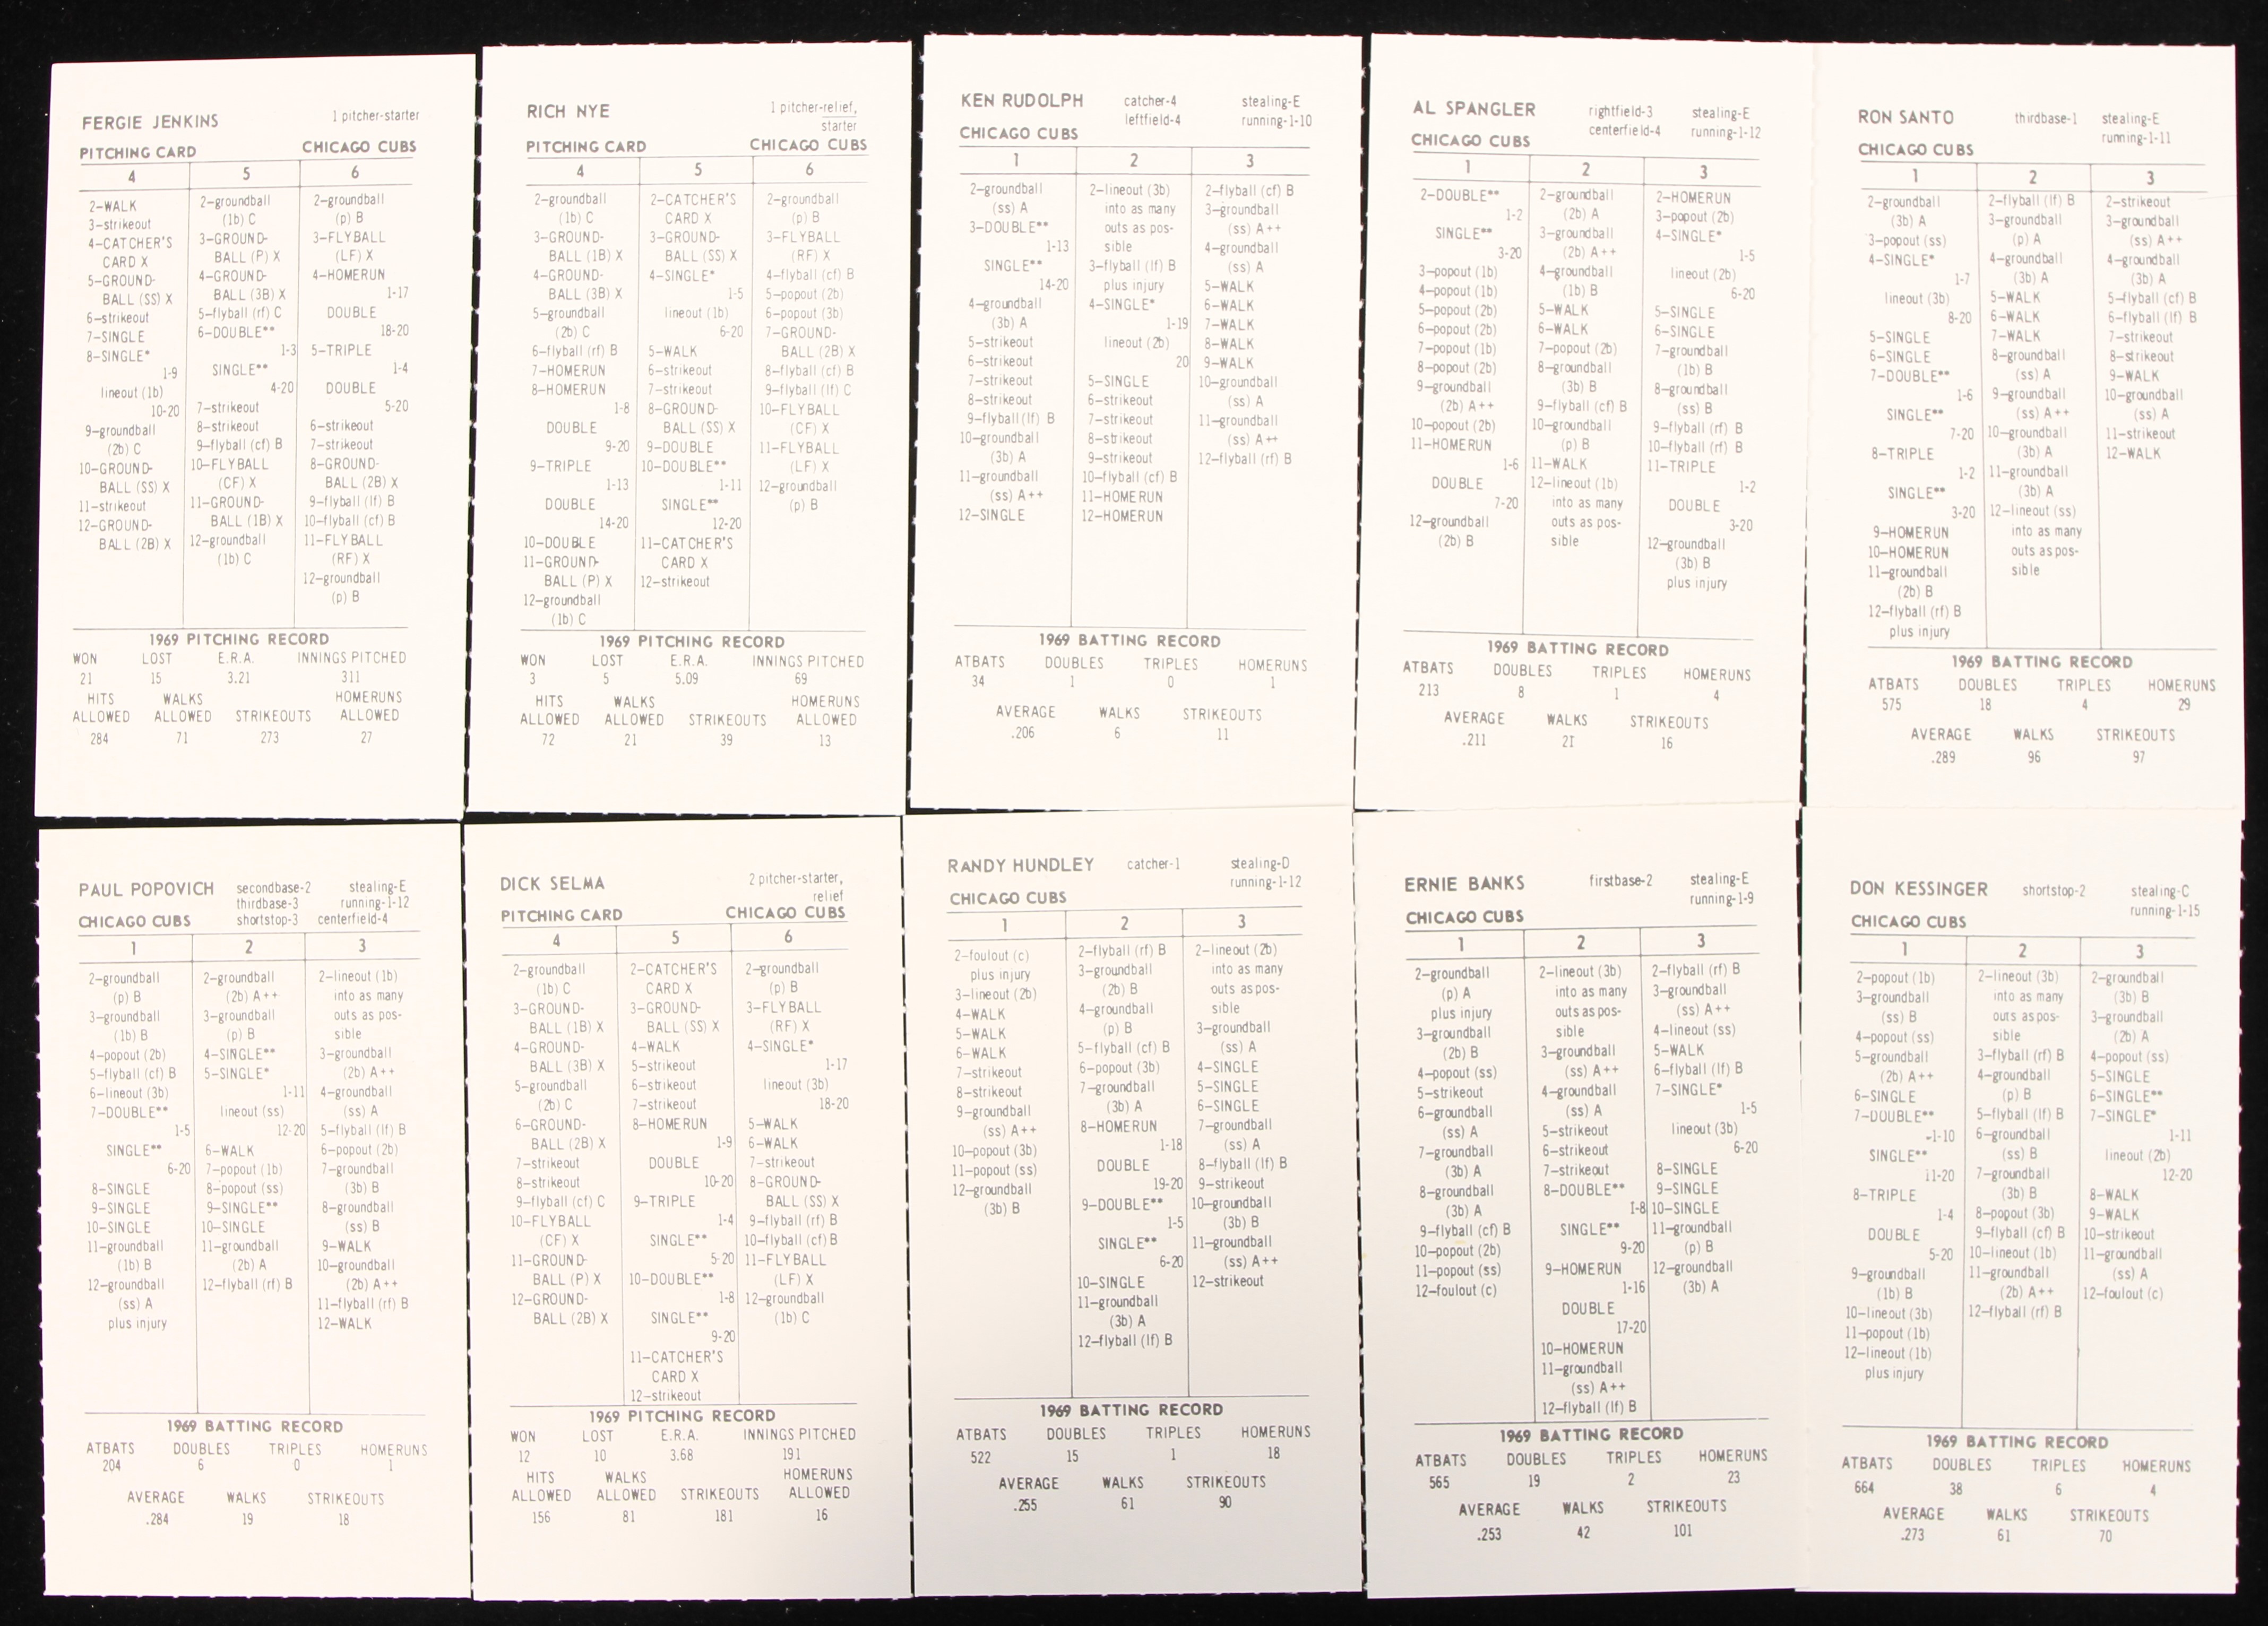 FERGIE JENKINS 1 pitcher-starter
PITCHING CARD CHICAGO CUBS
4 5 6
2-WALK
3-strikeout
4-CATCHER'S
CARD X
5-GROUND-
BALL (SS) X
6-strikeout
7-SINGLE
8-SINGLE*
1-9
lineout (1b)
10-20
9-groundball
(2b) C
10-GROUND-
BALL (SS) X
11-strikeout
12-GROUND-
BALL (2B) X
2-groundball
(1b) C
3-GROUND-
BALL (P) X
4-GROUND-
BALL (3B) X
5-flyball (rf) C
6-DOUBLE**
1-3
SINGLE**
4-20
7-strikeout
8-strikeout
9-flyball (cf) B
10-FLYBALL
(CF) X
11-GROUND-
BALL (1B) X
12-groundball
(1b) C
2-groundball
(p) B
3-FLYBALL
(LF) X
4-HOMERUN
1-17
DOUBLE
18-20
5-TRIPLE
1-4
DOUBLE
5-20
6-strikeout
7-strikeout
8-GROUND-
BALL (2B) X
9-flyball (lf) B
10-flyball (cf) B
11-FLYBALL
(RF) X
12-groundball
(p) B
1969 PITCHING RECORD
WON LOST E.R.A. INNINGS PITCHED
21 15 3.21 311
HITS WALKS HOMERUNS
ALLOWED ALLOWED STRIKEOUTS ALLOWED
284 71 273 27
RICH NYE 1 pitcher-relief,
starter
PITCHING CARD CHICAGO CUBS
4 5 6
2-groundball
(1b) C
3-GROUND-
BALL (1B) X
4-GROUND-
BALL (3B) X
5-groundball
(2b) C
6-flyball (rf) B
7-HOMERUN
8-HOMERUN
1-8
DOUBLE
9-20
9-TRIPLE
1-13
DOUBLE
14-20
10-DOUBLE
11-GROUND-
BALL (P) X
12-groundball
(1b) C
2-CATCHER'S
CARD X
3-GROUND-
BALL (SS) X
4-SINGLE*
1-5
lineout (1b)
6-20
5-WALK
6-strikeout
7-strikeout
8-GROUND-
BALL (SS) X
9-DOUBLE
10-DOUBLE**
1-11
SINGLE**
12-20
11-CATCHER'S
CARD X
12-strikeout
2-groundball
(p) B
3-FLYBALL
(RF) X
4-flyball (cf) B
5-popout (2b)
6-popout (3b)
7-GROUND-
BALL (2B) X
8-flyball (cf) B
9-flyball (lf) C
10-FLYBALL
(CF) X
11-FLYBALL
(LF) X
12-groundball
(p) B
1969 PITCHING RECORD
WON LOST E.R.A. INNINGS PITCHED
3 5 5.09 69
HITS WALKS HOMERUNS
ALLOWED ALLOWED STRIKEOUTS ALLOWED
72 21 39 13
KEN RUDOLPH catcher-4 stealing-E
leftfield-4 running-1-10
CHICAGO CUBS
1 2 3
2-groundball
(ss) A
3-DOUBLE**
1-13
SINGLE**
14-20
4-groundball
(3b) A
5-strikeout
6-strikeout
7-strikeout
8-strikeout
9-flyball(lf) B
10-groundball
(3b) A
11-groundball
(ss) A++
12-SINGLE
2-lineout (3b)
into as many
outs as pos-
sible
3-flyball (lf) B
plus injury
4-SINGLE*
1-19
lineout (2b)
20
5-SINGLE
6-strikeout
7-strikeout
8-strikeout
9-strikeout
10-flyball (cf) B
11-HOMERUN
12-HOMERUN
2-flyball (cf) B
3-groundball
(ss) A++
4-groundball
(ss) A
5-WALK
6-WALK
7-WALK
8-WALK
9-WALK
10-groundball
(ss) A
11-groundball
(ss) A++
12-flyball (rf) B
1969 BATTING RECORD
ATBATS DOUBLES TRIPLES HOMERUNS
34 1 0 1
AVERAGE WALKS STRIKEOUTS
.206 6 11
AL SPANGLER rightfield-3 stealing-E
centerfield-4 running-1-12
CHICAGO CUBS
1 2 3
2-DOUBLE**
1-2
SINGLE**
3-20
3-popout (1b)
4-popout (1b)
5-popout (2b)
6-popout (2b)
7-popout (1b)
8-popout (2b)
9-groundball
(2b) A++
10-popout (2b)
11-HOMERUN
1-6
DOUBLE
7-20
12-groundball
(2b) B
2-groundball
(2b) A
3-groundball
(2b) A++
4-groundball
(1b) B
5-WALK
6-WALK
7-popout (2b)
8-groundball
(3b) B
9-flyball (cf) B
10-groundball
(p) B
11-WALK
12-lineout (1b)
into as many
outs as pos-
sible
2-HOMERUN
3-popout (2b)
4-SINGLE*
1-5
lineout (2b)
6-20
5-SINGLE
6-SINGLE
7-groundball
(1b) B
8-groundball
(ss) B
9-flyball (rf) B
10-flyball (rf) B
11-TRIPLE
1-2
DOUBLE
3-20
12-groundball
(3b) B
plus injury
1969 BATTING RECORD
ATBATS DOUBLES TRIPLES HOMERUNS
213 8 1 4
AVERAGE WALKS STRIKEOUTS
.211 21 16
RON SANTO thirdbase-1 stealing-E
running-1-11
CHICAGO CUBS
1 2 3
2-groundball
(3b) A
3-popout (ss)
4-SINGLE*
1-7
lineout (3b)
8-20
5-SINGLE
6-SINGLE
7-DOUBLE**
1-6
SINGLE**
7-20
8-TRIPLE
1-2
SINGLE**
3-20
9-HOMERUN
10-HOMERUN
11-groundball
(2b) B
12-flyball (rf) B
plus injury
2-flyball (lf) B
3-groundball
(p) A
4-groundball
(3b) A
5-WALK
6-WALK
7-WALK
8-groundball
(ss) A
9-groundball
(ss) A++
10-groundball
(3b) A
11-groundball
(3b) A
12-lineout (ss)
into as many
outs as pos-
sible
2-strikeout
3-groundball
(ss) A++
4-groundball
(3b) A
5-flyball (cf) B
6-flyball (lf) B
7-strikeout
8-strikeout
9-WALK
10-groundball
(ss) A
11-strikeout
12-WALK
1969 BATTING RECORD
ATBATS DOUBLES TRIPLES HOMERUNS
575 18 4 29
AVERAGE WALKS STRIKEOUTS
.289 96 97
PAUL POPOVICH secondbase-2 stealing-E
thirdbase-3 running-1-12
CHICAGO CUBS shortstop-3 centerfield-4
1 2 3
2-groundball
(p) B
3-groundball
(1b) B
4-popout (2b)
5-flyball (cf) B
6-lineout (3b)
7-DOUBLE**
1-5
SINGLE**
6-20
8-SINGLE
9-SINGLE
10-SINGLE
11-groundball
(1b) B
12-groundball
(ss) A
plus injury
2-groundball
(2b) A++
3-groundball
(p) B
4-SINGLE**
5-SINGLE*
1-11
lineout (ss)
12-20
6-WALK
7-popout (1b)
8-popout (ss)
9-SINGLE**
10-SINGLE
11-groundball
(2b) A
12-flyball (rf) B
2-lineout (1b)
into as many
outs as pos-
sible
3-groundball
(2b) A++
4-groundball
(ss) A
5-flyball (lf) B
6-popout (2b)
7-groundball
(3b) B
8-groundball
(ss) B
9-WALK
10-groundball
(2b) A++
11-flyball (rf) B
12-WALK
1969 BATTING RECORD
ATBATS DOUBLES TRIPLES HOMERUNS
204 6 0 1
AVERAGE WALKS STRIKEOUTS
.284 19 18
DICK SELMA 2 pitcher-starter,
relief
PITCHING CARD CHICAGO CUBS
4 5 6
2-groundball
(1b) C
3-GROUND-
BALL (1B) X
4-GROUND-
BALL (3B) X
5-groundball
(2b) C
6-GROUND-
BALL (2B) X
7-strikeout
8-strikeout
9-flyball (cf) C
10-FLYBALL
(CF) X
11-GROUND-
BALL (P) X
12-GROUND-
BALL (2B) X
2-CATCHER'S
CARD X
3-GROUND-
BALL (SS) X
4-WALK
5-strikeout
6-strikeout
7-strikeout
8-HOMERUN
1-9
DOUBLE
10-20
9-TRIPLE
1-4
SINGLE**
5-20
10-DOUBLE**
1-8
SINGLE**
9-20
11-CATCHER'S
CARD X
12-strikeout
2-groundball
(p) B
3-FLYBALL
(RF) X
4-SINGLE*
1-17
lineout (3b)
18-20
5-WALK
6-WALK
7-strikeout
8-GROUND-
BALL (SS) X
9-flyball (rf) B
10-flyball (cf) B
11-FLYBALL
(LF) X
12-groundball
(1b) C
1969 PITCHING RECORD
WON LOST E.R.A. INNINGS PITCHED
12 10 3.68 191
HITS WALKS HOMERUNS
ALLOWED ALLOWED STRIKEOUTS ALLOWED
156 81 181 16
RANDY HUNDLEY catcher-1 stealing-D
running-1-12
CHICAGO CUBS
1 2 3
2-foulout (c)
plus injury
3-lineout (2b)
4-WALK
5-WALK
6-WALK
7-strikeout
8-strikeout
9-groundball
(ss) A++
10-popout (3b)
11-popout (ss)
12-groundball
(3b) B
2-flyball (rf) B
3-groundball
(2b) B
4-groundball
(p) B
5-flyball (cf) B
6-popout (3b)
7-groundball
(3b) A
8-HOMERUN
1-18
DOUBLE
19-20
9-DOUBLE**
1-5
SINGLE**
6-20
10-SINGLE
11-groundball
(3b) A
12-flyball (lf) B
2-lineout (2b)
into as many
outs as pos-
sible
3-groundball
(ss) A
4-SINGLE
5-SINGLE
6-SINGLE
7-groundball
(ss) A
8-flyball (lf) B
9-strikeout
10-groundball
(3b) B
11-groundball
(ss) A++
12-strikeout
1969 BATTING RECORD
ATBATS DOUBLES TRIPLES HOMERUNS
522 15 1 18
AVERAGE WALKS STRIKEOUTS
.255 61 90
ERNIE BANKS firstbase-2 stealing-E
running-1-9
CHICAGO CUBS
1 2 3
2-groundball
(p) A
plus injury
3-groundball
(2b) B
4-popout (ss)
5-strikeout
6-groundball
(ss) A
7-groundball
(3b) A
8-groundball
(3b) A
9-flyball (cf) B
10-popout (2b)
11-popout (ss)
12-foulout (c)
2-lineout (3b)
into as many
outs as pos-
sible
3-groundball
(ss) A++
4-groundball
(ss) A
5-strikeout
6-strikeout
7-strikeout
8-DOUBLE**
1-8
SINGLE**
9-20
9-HOMERUN
1-16
DOUBLE
17-20
10-HOMERUN
11-groundball
(ss) A++
12-flyball (lf) B
2-flyball (rf) B
3-groundball
(ss) A++
4-lineout (ss)
5-WALK
6-flyball (lf) B
7-SINGLE*
1-5
lineout (3b)
6-20
8-SINGLE
9-SINGLE
10-SINGLE
11-groundball
(p) B
12-groundball
(3b) A
1969 BATTING RECORD
ATBATS DOUBLES TRIPLES HOMERUNS
565 19 2 23
AVERAGE WALKS STRIKEOUTS
.253 42 101
DON KESSINGER shortstop-2 stealing-C
running-1-15
CHICAGO CUBS
1 2 3
2-popout (1b)
3-groundball
(ss) B
4-popout (ss)
5-groundball
(2b) A++
6-SINGLE
7-DOUBLE**
1-10
SINGLE**
11-20
8-TRIPLE
1-4
DOUBLE
5-20
9-groundball
(1b) B
10-lineout (3b)
11-popout (1b)
12-lineout (1b)
plus injury
2-lineout (3b)
into as many
outs as pos-
sible
3-flyball (rf) B
4-groundball
(p) B
5-flyball (lf) B
6-groundball
(ss) B
7-groundball
(3b) B
8-popout (3b)
9-flyball (cf) B
10-lineout (1b)
11-groundball
(2b) A++
12-flyball (rf) B
2-groundball
(3b) B
3-groundball
(2b) A
4-popout (ss)
5-SINGLE
6-SINGLE**
7-SINGLE*
1-11
lineout (2b)
12-20
8-WALK
9-WALK
10-strikeout
11-groundball
(ss) A
12-foulout (c)
1969 BATTING RECORD
ATBATS DOUBLES TRIPLES HOMERUNS
664 38 6 4
AVERAGE WALKS STRIKEOUTS
.273 61 70